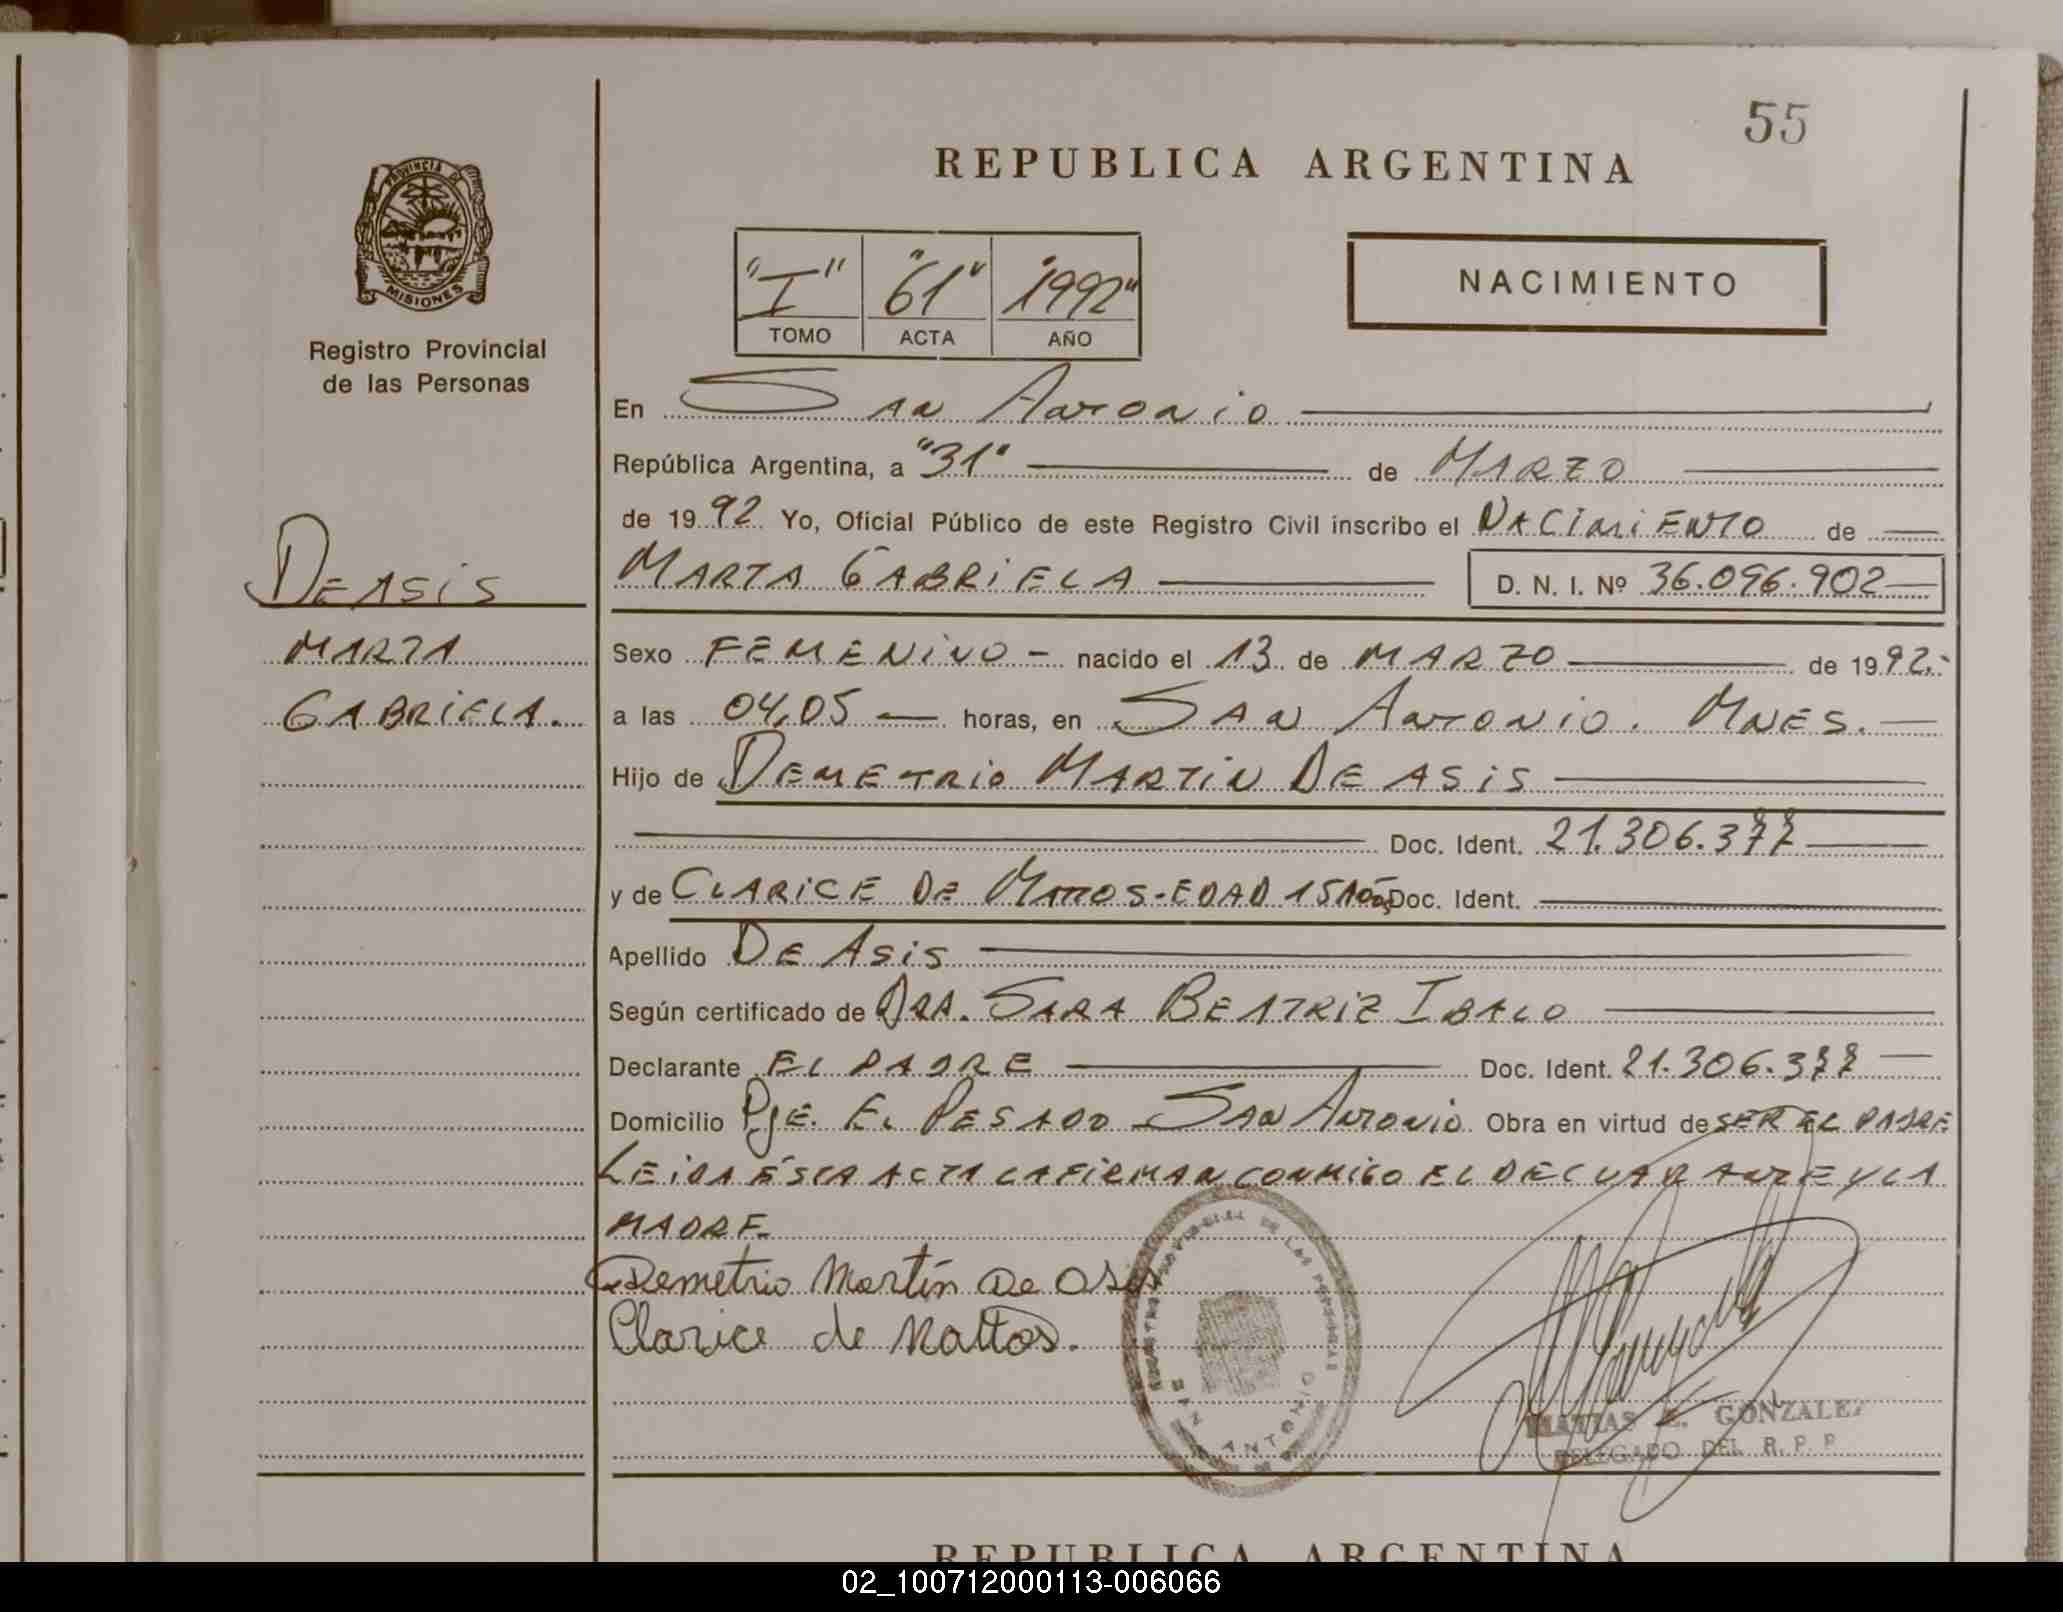 55
REPUBLICA ARGENTINA
PROVINCIA DE
MISIONES
Registro Provincial
de las Personas
"I" "61" "1992"
TOMO ACTA AÑO
NACIMIENTO
En San Antonio
República Argentina, a "31" de MARZO
de 1992 Yo, Oficial Público de este Registro Civil inscribo el NACIMIENTO de
MARTA GABRIELA D. N. I. Nº 36.096.902
DE ASIS
MARTA
GABRIELA.
Sexo FEMENINO - nacido el 13 de MARZO de 1992.-
a las 04,05 horas, en SAN ANTONIO. MNES.
Hijo de DEMETRIO MARTIN DE ASIS
Doc. Ident. 21.306.377
y de CLARICE DE MATTOS-EDAD 15 AÑOS Doc. Ident.
Apellido DE ASIS
Según certificado de DRA. SARA BEATRIZ IBALO
Declarante EL PADRE Doc. Ident. 21.306.377
Domicilio PJE. EL PESADO SAN ANTONIO Obra en virtud de SER EL PADRE
LEIDA ÉSTA ACTA LA FIRMAN CONMIGO EL DECLARANTE Y LA
MADRE.
Demetrio Martín De Asis
Clarice de Mattos.
SAN ANTONIO
MATIAS E. GONZALEZ
DELEGADO DEL R. P. P.
REPUBLICA ARGENTINA
02_100712000113-006066